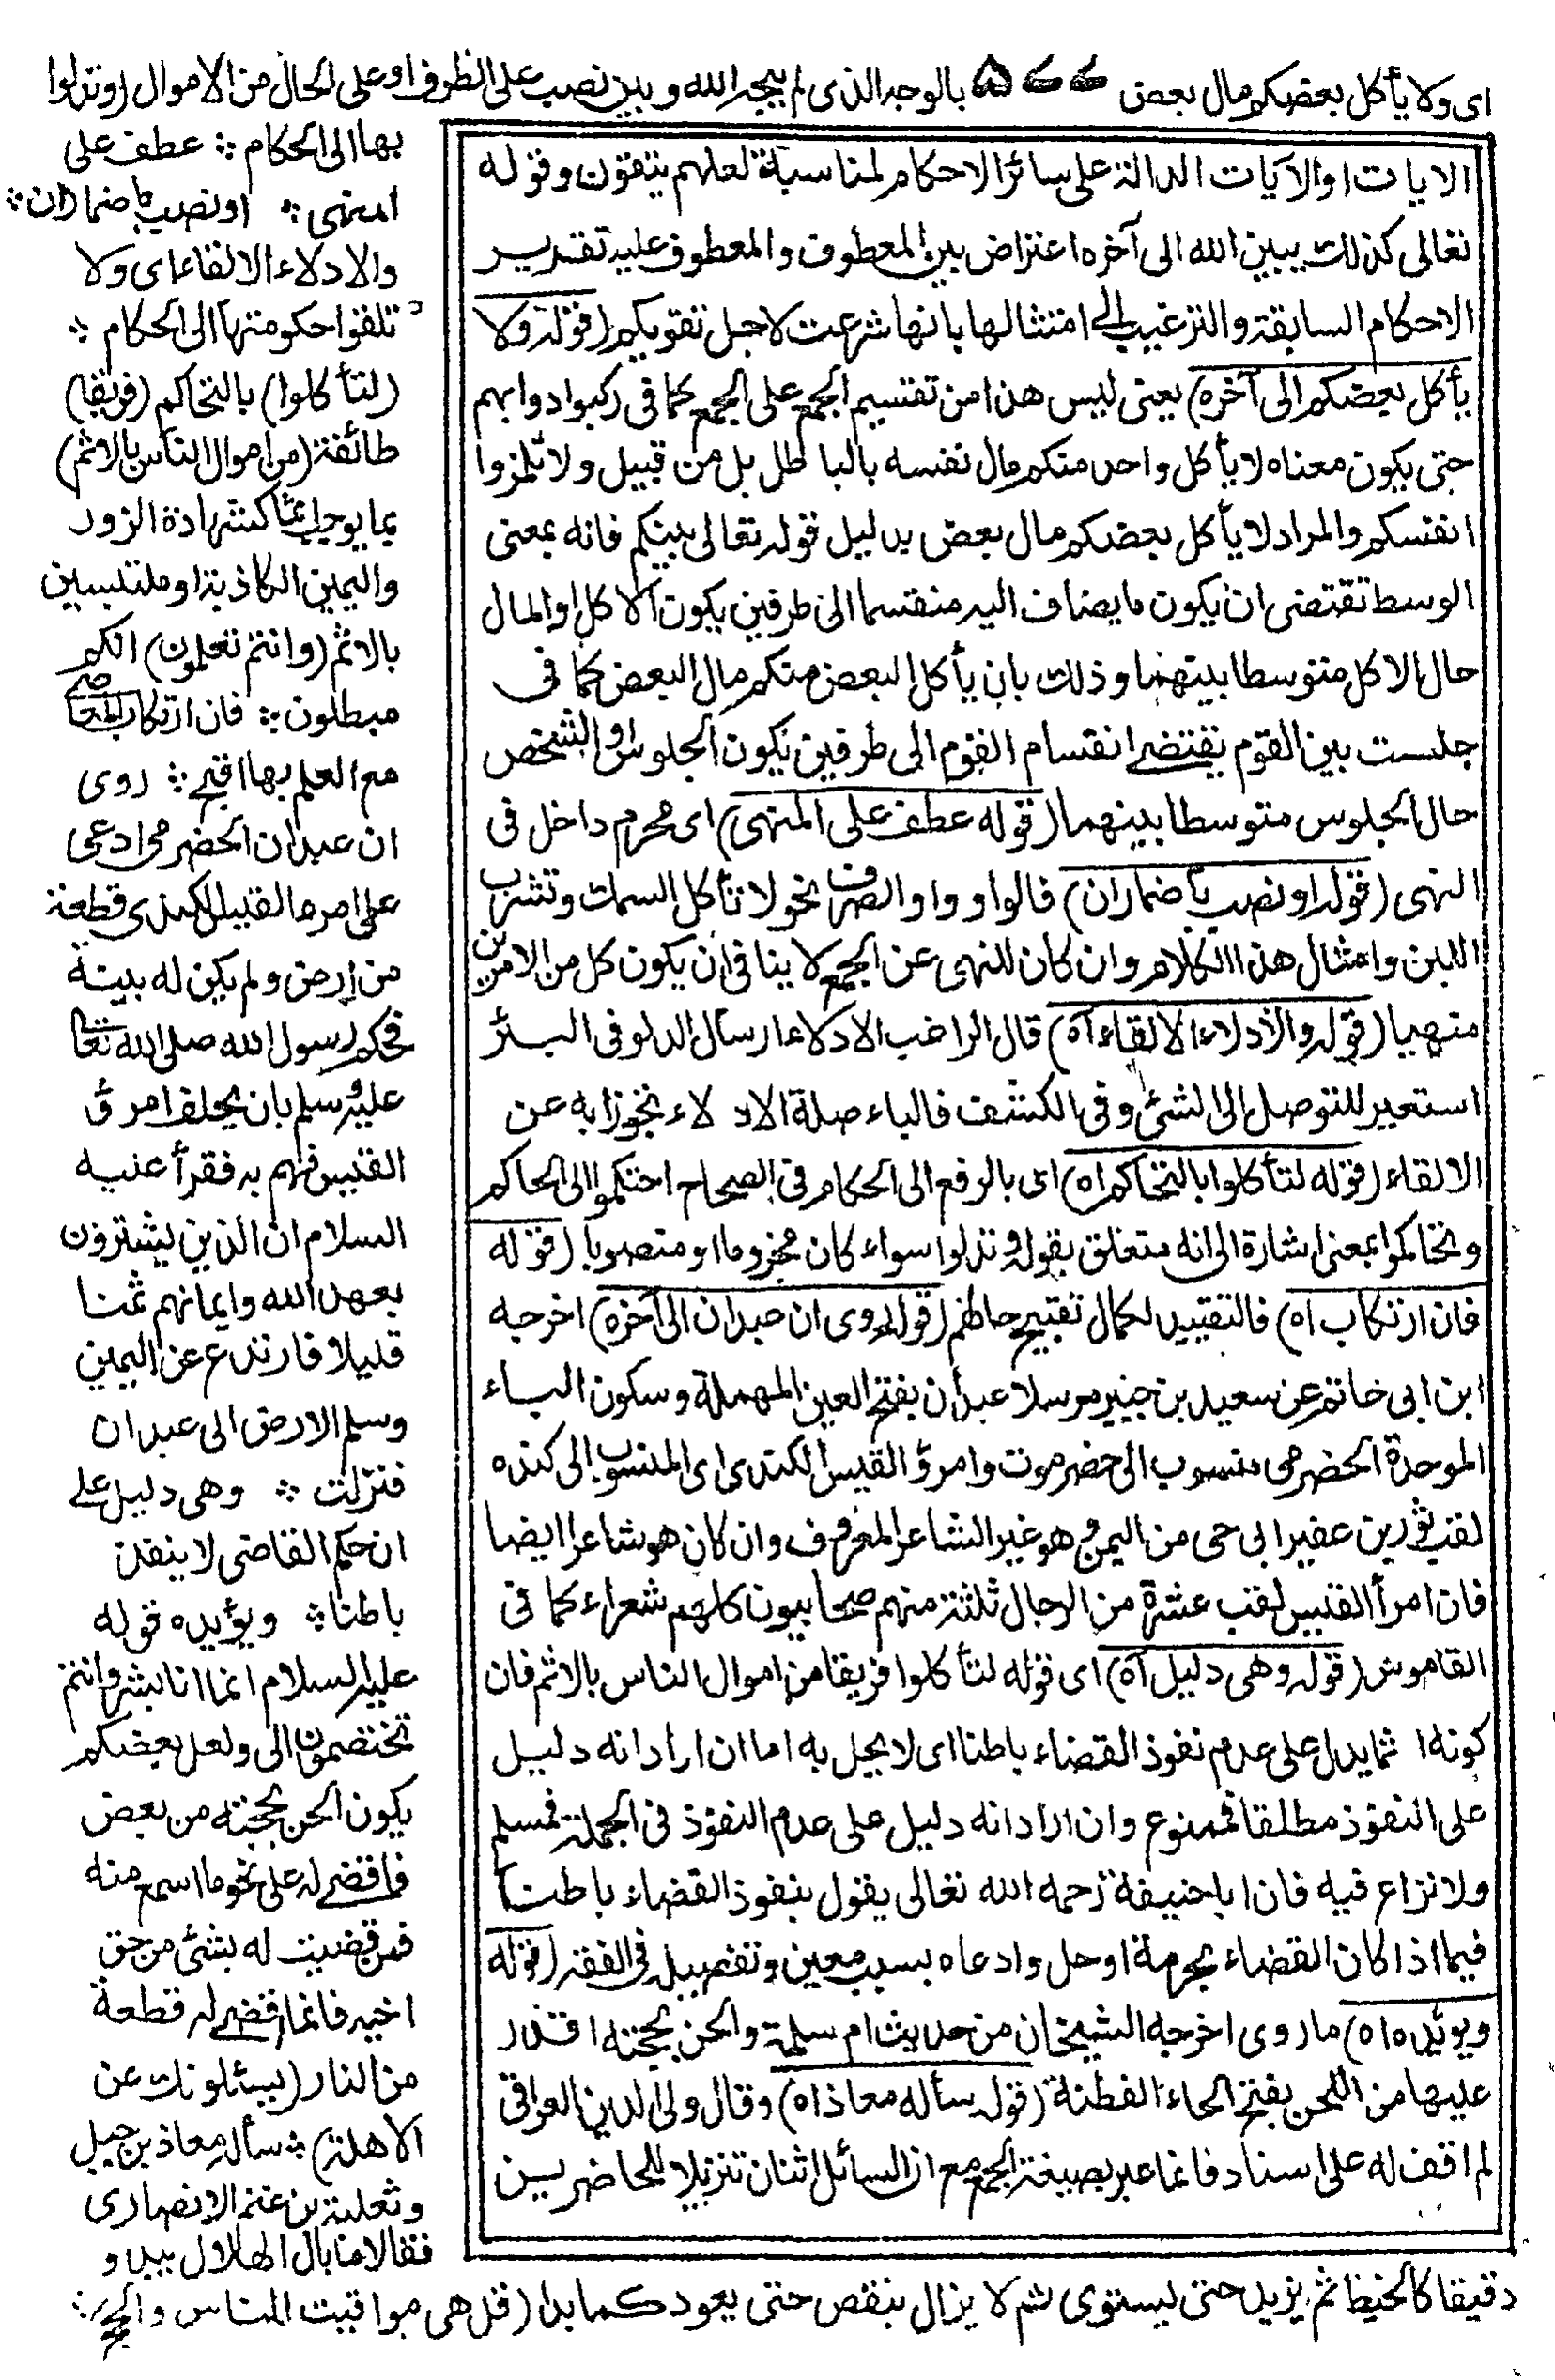 اى ولا يأكل بعضكم مال بعض ۵۷۷ بالوجه الذى لم يبحه الله وبين نصب على الظرف او على الحال من الاموال (وتدلوا
بها الى الحكام ؞ عطف على
المنهى ؞ او نصب باضماران ؞
والادلاء الالقاء اى ولا
تلقوا حكومتها الى الحكام ؞
(لتأكلوا) بالتحاكم (فريقا)
طائفة (من اموال الناس بالاثم)
بما يوجب اثما كشهادة الزور
واليمين الكاذبة او ملتبسين
بالاثم (وانتم تعلمون) انكم
مبطلون ؞ فان ارتكاب المعاصى
مع العلم بها اقبح ؞ روى
ان عبدان الحضرمى ادعى
على امرء القيس الكندى قطعة
من ارض ولم يكن له بينة
فحكم رسول الله صلى الله تعا
عليه وسلم بان يحلف امرؤ
القيس فهم به فقرأ عليه
السلام ان الذين يشترون
بعهد الله وايمانهم ثمنا
قليلا فارتدع عن اليمين
وسلم الارض الى عبدان
فنزلت ؞ وهى دليل على
ان حكم القاضى لا ينفذ
باطنا ؞ ويؤيده قوله
عليه السلام انما انا بشر وانتم
تختصمون الى ولعل بعضكم
يكون الحن بحجته من بعض
فاقضى له على نحو ما اسمع منه
فمن قضيت له بشئ من حق
اخيه فانما اقضى له قطعة
من النار (يسئلونك عن
الاهلة) ؞ سأله معاذ بن جبل
وثعلبة بن غنم الانصارى
فقالا ما بال الهلال يبدو
دقيقا كالخيط ثم يزيد حتى يستوى ثم لا يزال ينقص حتى يعود كما بدا (قل هى مواقيت للناس والحج) ؞
الايات او الآيات الدالة على سائر الاحكام لمناسبة لعلهم يتقون وقوله
تعالى كذلك يبين الله الى آخره اعتراض بين المعطوف والمعطوف عليه تقدير
الاحكام السابقة والترغيب الى امتثالها بانها شرعت لاجل تقويكم (قوله ولا
يأكل بعضكم الى آخره) يعنى ليس هذا من تقسيم الجمع على الجمع كما فى ركبوا دوابهم
حتى يكون معناه لا يأكل واحد منكم مال نفسه بالباطل بل من قبيل ولا تلمزوا
انفسكم والمراد لا يأكل بعضكم مال بعض بدليل قوله تعالى بينكم فانه بمعنى
الوسط تقتضى ان يكون ما يضاف اليه منقسما الى طرفين يكون الاكل او المال
حال الاكل متوسطا بينهما وذلك بان يأكل البعض منكم مال البعض كما فى
جلست بين القوم يقتضى انقسام القوم الى طرفين يكون الجلوس او الشخص
حال الجلوس متوسطا بينهما (قوله عطف على المنهى) اى مجزوم داخل فى
النهى (قوله او نصب باضماران) فالواو واو الصرف نحو لا تأكل السمك وتشرب
اللبن وامثال هذا الكلام وان كان للنهى عن الجمع لا ينافى ان يكون كل من الامرين
منهيا (قوله والادلاء الالقاء آه) قال الراغب الادلاء ارسال الدلو فى البئر
استعير للتوصل الى الشئ وفى الكشف فالباء صلة الادلاء تجوزا به عن
الالقاء (قوله لتأكلوا بالتحاكم اه) اى بالرفع الى الحكام فى الصحاح احتكموا الى الحاكم
وتحاكموا بمعنى اشارة الى انه متعلق بقوله وتدلوا سواء كان مجزوما او منصوبا (قوله
فان ارتكاب اه) فالتقييد لكمال تقبيح حالهم (قوله روى ان عبدان الى آخره) اخرجه
ابن ابى حاتم عن سعيد بن جبير مرسلا عبدان بفتح العين المهملة وسكون الباء
الموحدة الحضرمى منسوب الى حضرموت وامرؤ القيس الكندى اى المنسوب الى كنده
لقب ثور بن عفير ابى حى من اليمن وهو غير الشاعر المعروف وان كان هو شاعرا ايضا
فان امرأ القيس لقب عشرة من الرجال ثلثة منهم صحابيون كلهم شعراء كما فى
القاموس (قوله وهى دليل آه) اى قوله لتأكلوا فريقا من اموال الناس بالاثم فان
كونه اثما يدل على عدم نفوذ القضاء باطنا اى لا يحل به اما ان اراد انه دليل
على النفوذ مطلقا فممنوع وان اراد انه دليل على عدم النفوذ فى الجملة فمسلم
ولا نزاع فيه فان ابا حنيفة رحمه الله تعالى يقول بنفوذ القضاء باطنا
فيما اذا كان القضاء بحرمة او حل وادعاه بسبب معين وتفصيله فى الفقه (قوله
ويؤيده اه) ما روى اخرجه الشيخان من حديث ام سلمة والحن بحجته اقدر
عليها من اللحن بفتح الحاء الفطنة (قوله سأله معاذ اه) وقال ولى الدين العراقى
لم اقف له على اسناد فانما عبر بصيغة الجمع مع ان السائل اثنان تنزيلا للحاضرين